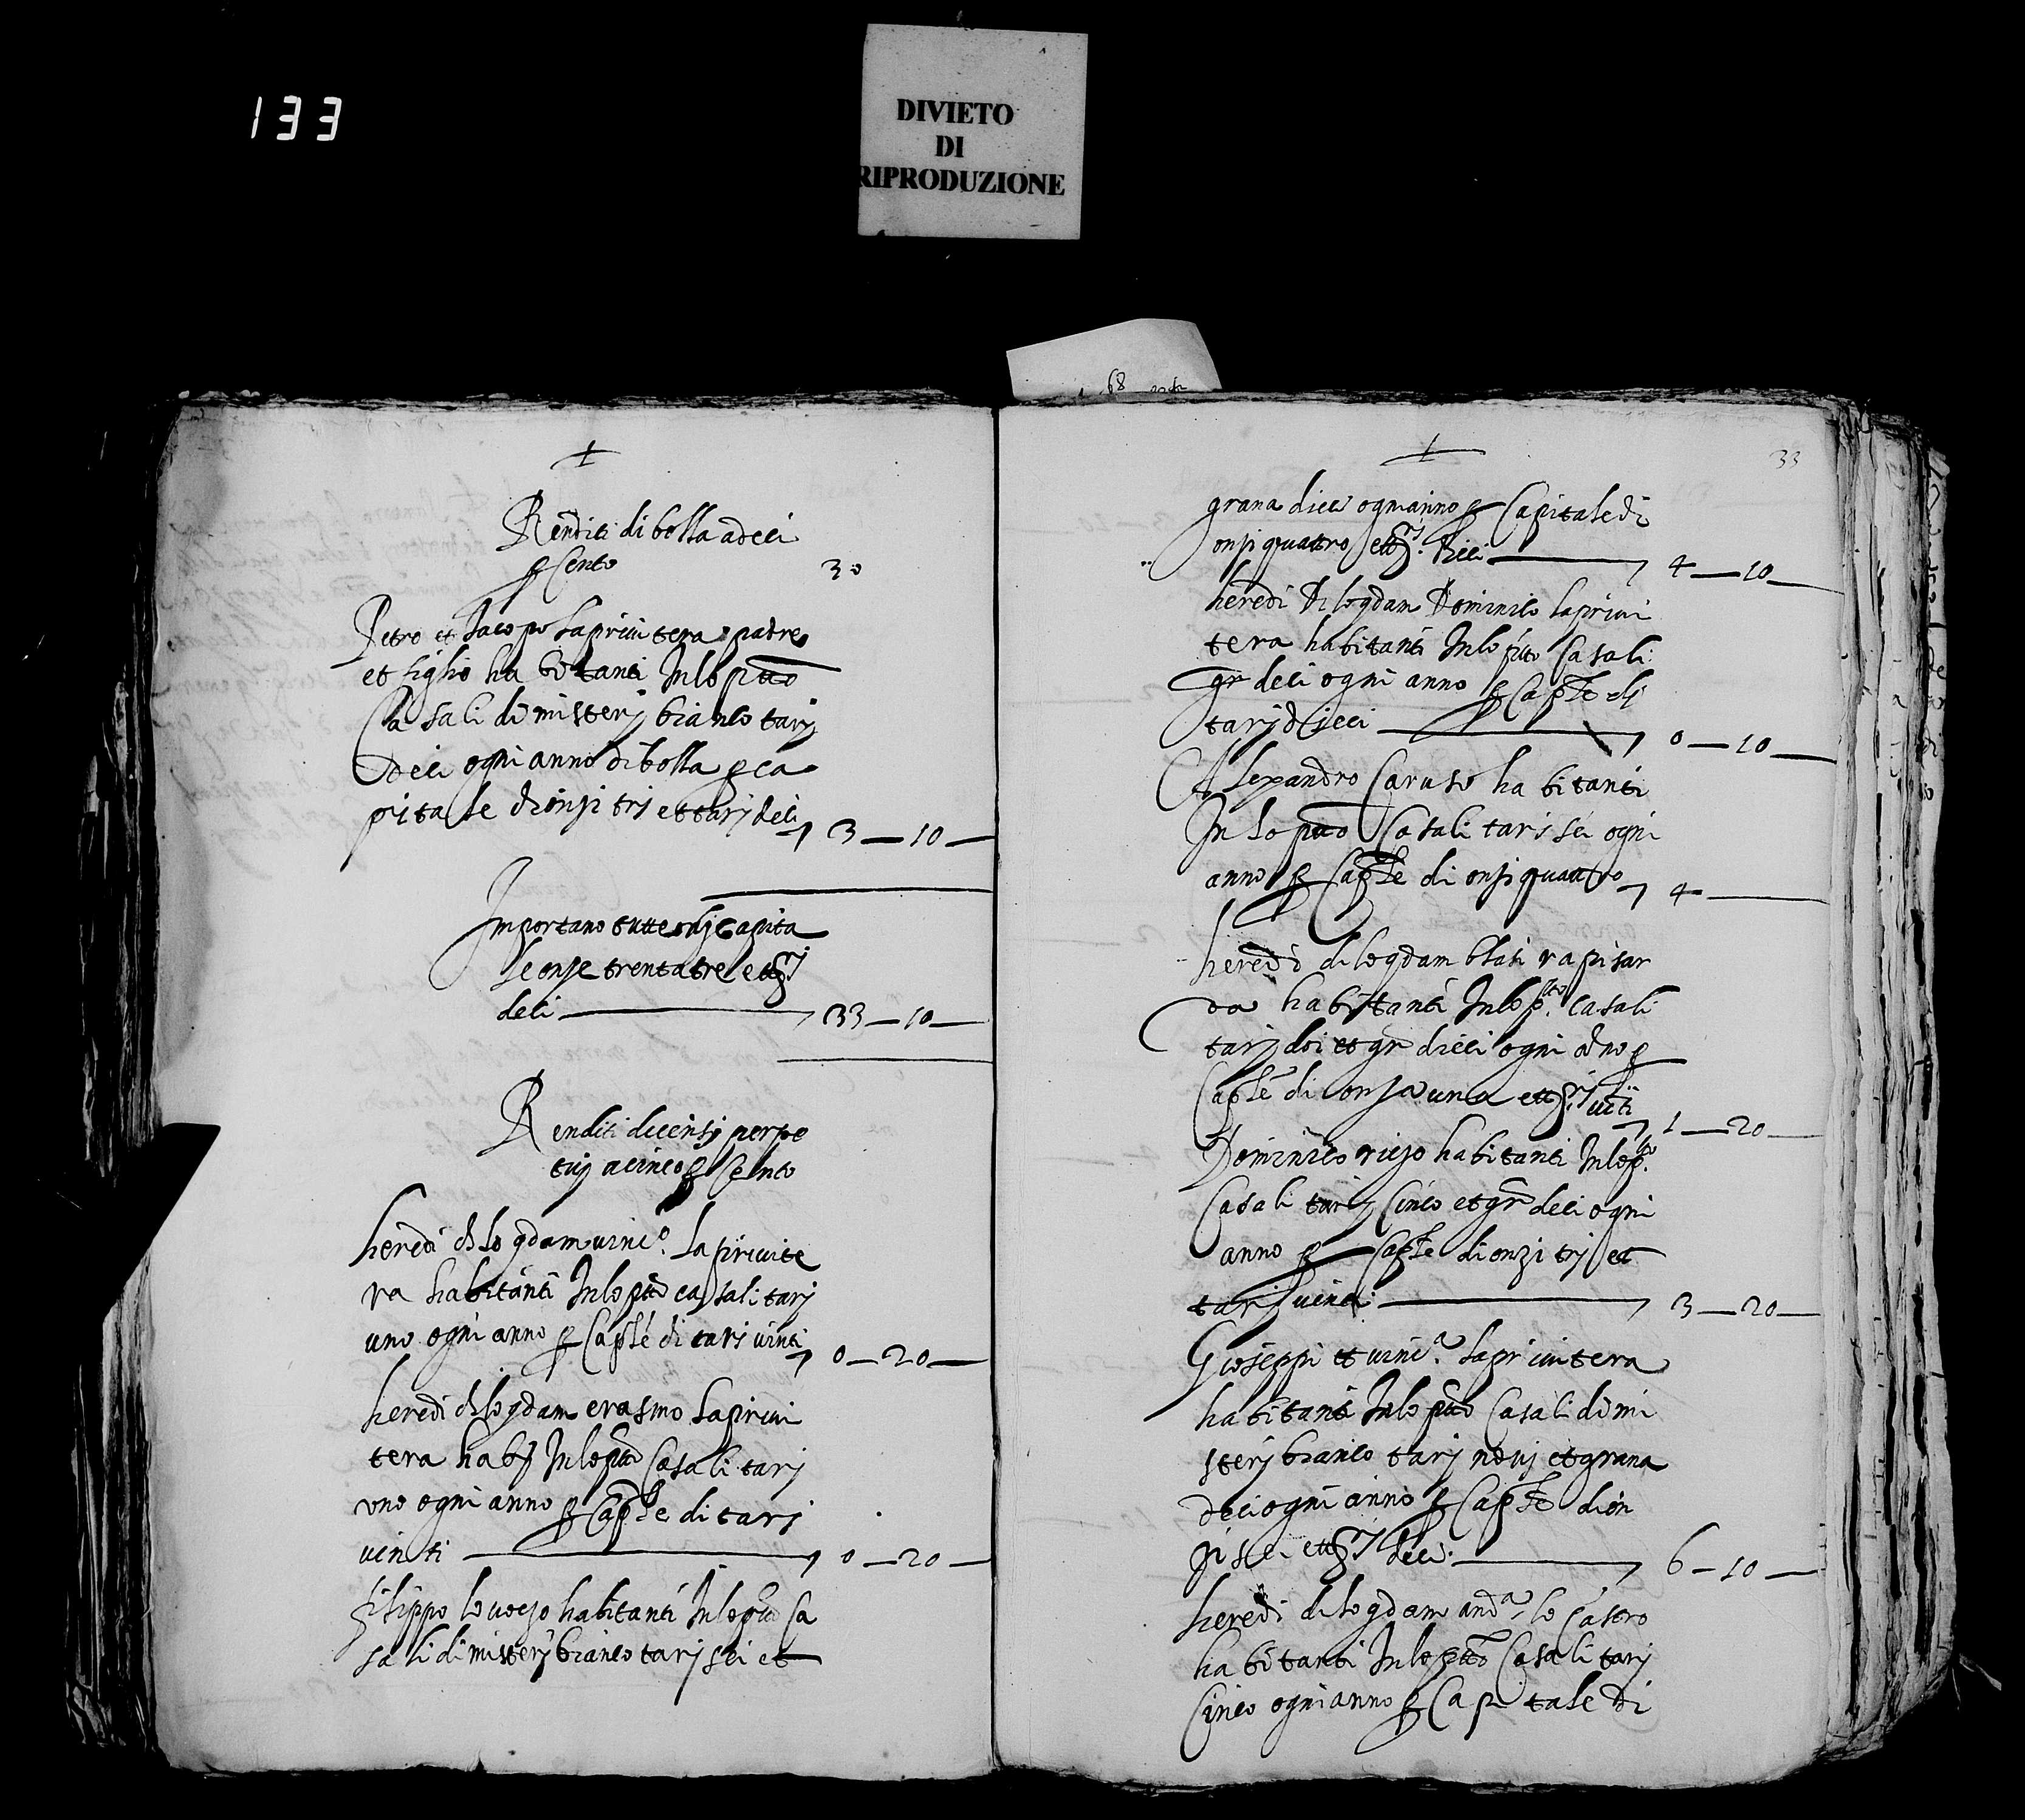 133
DIVIETO
DI
RIPRODUZIONE
68
Renditi di bolla a deci
p Cento 30
Petro et Iacopo la privitera padre
et figlio habitanti In lo ptto
Casali di misterj bianco tarj
deci ogni anno di bolla p ca
pitale di onsi tri et tarj deci 3—10—
Importano tutte capita
le onse trentatre et trj
deci 33—10—
Renditi di censj perpe
tuj a cinco p Cento
heredi di lo qdam vinco. la privite
ra habitanti In lo ptto casali tarj
uno ogni anno p Caple di tari vinti 0—20—
heredi di lo qdam erasmo la privi
tera habj In lo ptto Casali tarj
uno ogni anno p Caple di tarj
vinti 0—20—
filippo lo habitanti In lo ptto Ca
sali di misterj bianco tarj sei et
33
grana dieci ogni anno p Capitale di
onsi quattro et trj. 4—10—
heredi di lo qdam Dominico la privi
tera habitanti In lo ptto Casali
gr deci ogni anno p Caple di
tarj dieci 0—10—
Alexandro Caruso habitanti
In lo ptto Casali tari sei ogni
anno p Caple di onsi quattro 4—
heredi di lo qdam blasi rapisar
da habitanti In lo ptto. casali
tarj doi et gr dieci ogni anno p
Caple di onsa una et trj viti 1—20—
Dominico habitanti In lo ptto.
Casali tarj Cinco et gr deci ogni
anno p Caple di onzi trj et
tarj vinti 3—20—
Gioseppi et vinca. la privitera
habitanti In lo ptto Casali di mi
sterj bianco tarj novj et grana
deci ogni anno p Caple di on
si sei et trj deci. 6—10—
heredi di lo qdam anda. lo Castro
habitanti In lo ptto Casali tarj
Cinco ogni anno p Capitale di